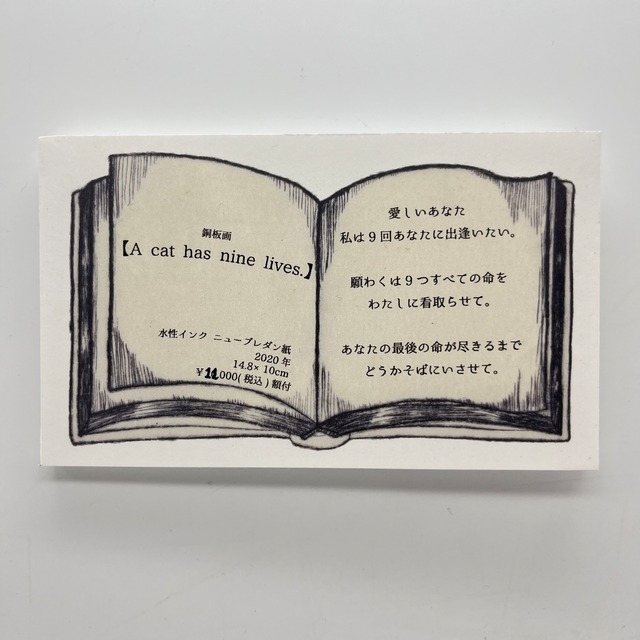 銅板画
【A cat has nine lives.】
水性インク ニューブレダン紙
2020年
14.8×10cm
¥11,000(税込)額付
愛しいあなた
私は9回あなたに出逢いたい。
願わくは9つすべての命を
わたしに看取らせて。
あなたの最後の命が尽きるまで
どうかそばにいさせて。